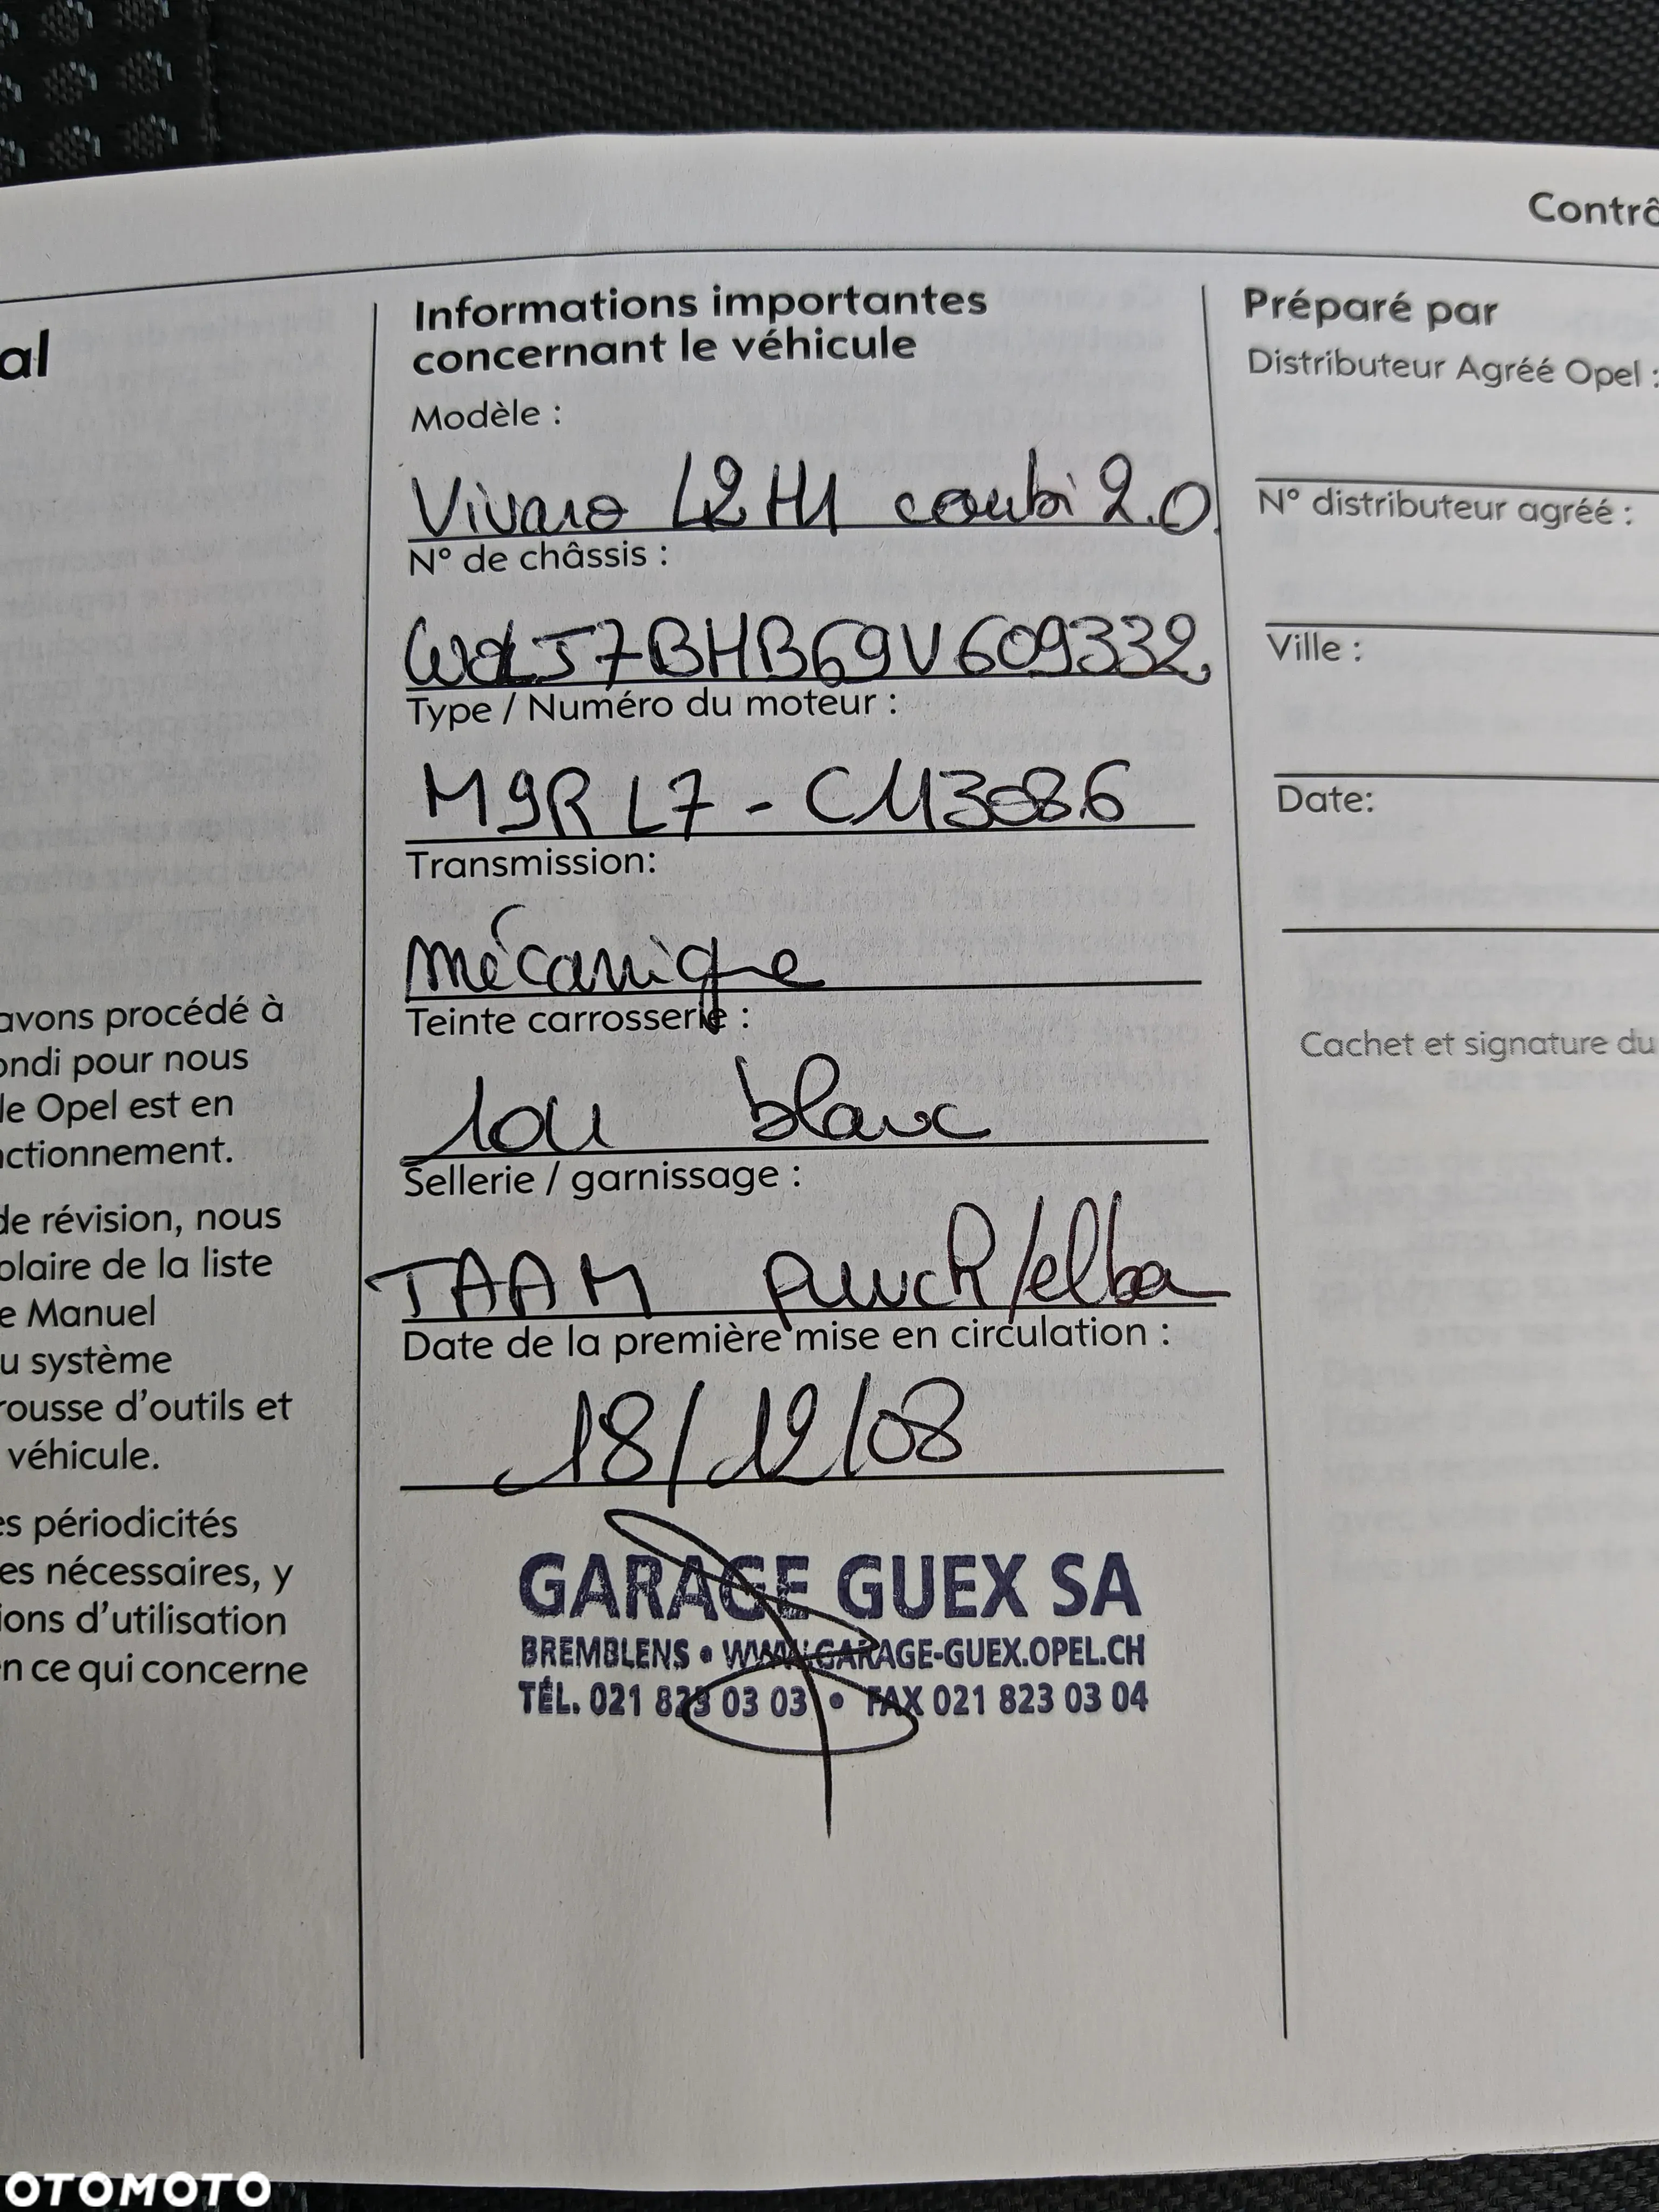 Contrô
al
avons procédé à
ondi pour nous
le Opel est en
nctionnement.
de révision, nous
olaire de la liste
e Manuel
u système
rousse d'outils et
véhicule.
es périodicités
es nécessaires, y
ions d'utilisation
en ce qui concerne
Informations importantes
concernant le véhicule
Modèle :
Vivaro L2H1 combi 2.0
N° de châssis :
W0LJ7BHB69V609332
Type / Numéro du moteur :
M9R L7 - C113086
Transmission:
mécanique
Teinte carrosserie :
10U blanc
Sellerie / garnissage :
TAAM /elba
Date de la première mise en circulation :
18/12/08
GARAGE GUEX SA
BREMBLENS • WWW.GARAGE-GUEX.OPEL.CH
TÉL. 021 823 03 03 • FAX 021 823 03 04
Préparé par
Distributeur Agréé Opel :
N° distributeur agréé :
Ville :
Date:
Cachet et signature du
OTOMOTO